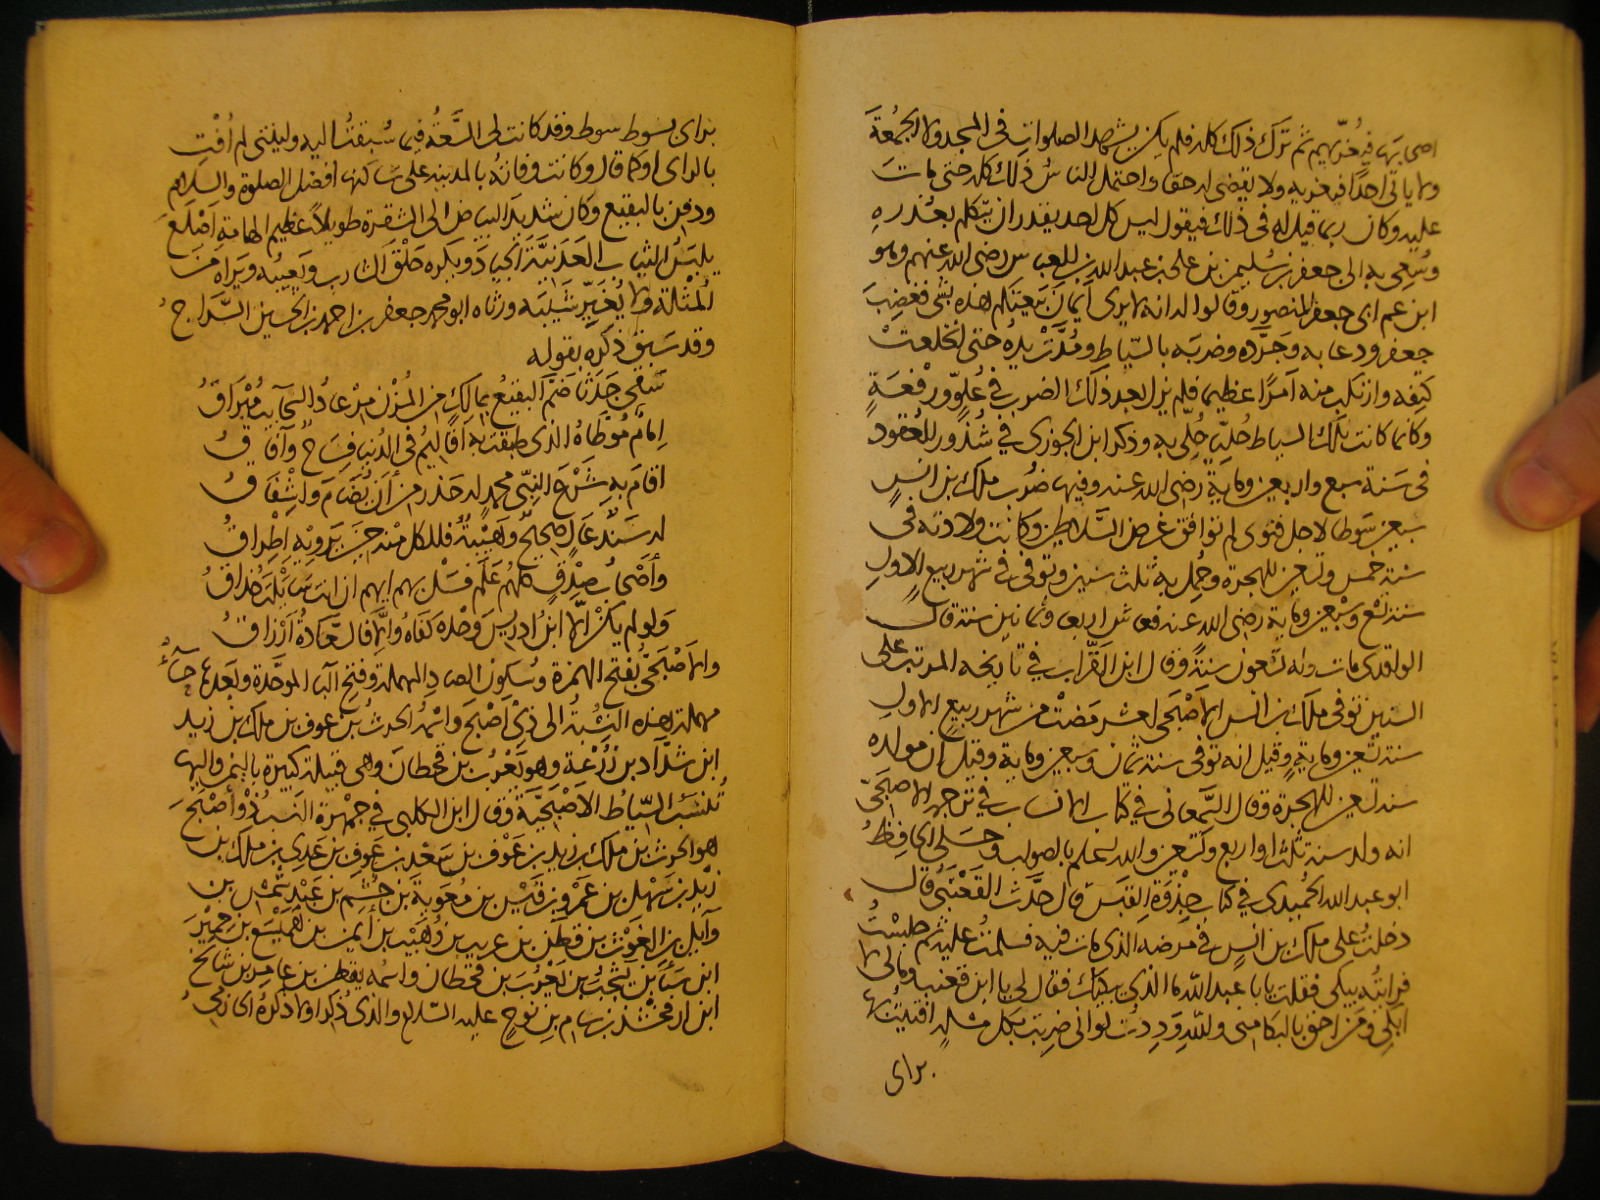 اصحابها فيعزيهم ثم ترك ذلك كله فلم يكن يشهد الصلوات في المسجد ولا الجمعة
ولا ياتي احدًا فيعزيه ولا يقضى له حقا واحتمل الناس ذلك كله حتى مات
عليه وكان ربما قيل له في ذلك فيقول ليس كل احد يقدر ان يتكلم بعذره
وسُعِى به الى جعفر بن سليمن بن على بن عبد الله بن العباس رضى الله عنهم وهو
ابن عم ابى جعفر المنصور وقالوا له انه لا يرى أيمان بيعتكم هذه بشى فغضب
جعفر ودعا به وجَرَّده وضربَه بالسِّياط ومُدَّت يدهُ حتى انخلعت
كتفه وارتكب منه امرًا عظيما فلم يزل بعد ذلك الضرب في عُلوٍّ ورفعةٍ
وكانما كانت تلك السياط حُليّا حُلِّى به وذكر ابن الجوزى في شذور العقود
فى سَنَة سبع واربعين وماية رضى الله عنه وفيها ضُرب ملك بن انسٍ
سبعين سَوطا لاجل فتوى لم توافق غرض السَّلاطين وكانت ولادته فى
سنة خمس وتسعين للهجرة وحُمل به ثلث سنين وتوفى في شهر ربيع الاول
سنة تسع وسبعين وماية رضى الله عنه فعاش اربعا وثمانين سنة قال
الواقدى مات وله تسعون سنةً وقال ابن الفرات في تاريخه المرتب على
السنين توفى ملك بن انس الاصبحى لعشر مضت من شهر ربيع الاول
سنة تسعين وماية وقيل انه توفى سنة ثمان وسبعين وماية وقيل ان مولده
سنة تسعين للهجرة وقال السَّمعانى في كتاب الانساب في ترجمة الاصبَحىّ
انه ولد سنة ثلث او اربع وتسعين والله اعلم بالصواب وحكى الحافظُ
ابو عبد الله الحُميدى في كتاب جذوة المقتبس قال حدَّث القَعْنَبى قال
دخلتُ على ملك بن انسٍ في مرضه الذى مات فيه فسلمتُ عليه ثم جلستُ
فرايتُه يبكى فقلت يا با عبد الله ما الذى يبكيك فقال لى يا ابن قعنب ومالى لا
ابكى ومن احق بالبكا منى والله لوددت انى ضربت بكل مسئلة افتيتُ بها
براى
براى بسوط سوط وقد كانت لى السَّعَةُ فيما سُبقتُ اليه وليتنى لم اُفْتِ
بالراى او كما قال وكانت وفاتهُ بالمدينه على ساكنها افضل الصلوة والسلام
ودفن بالبقيع وكان شديد البياض الى الشقرة طويلاً عظيم الهامة اَصْلعَ
يلبَسُ الثياب العَدَنيَّةَ الجيادَ ويكره حَلْق الشارب ويَعِيبُه ويَراه من
المُثْلة ولا يُغيِّر شَيْبَه ورثاه ابو محمد جعفر بن احمد بن الحسين السَّراج
وقد سَبق ذكره بقوله
سَقى جَدَثًا ضَمَّ البقيعُ لمالكٍ من المُزْن مرْعادُ السحآيبِ مُبْرَاقُ
اِمامٌ مُوَطَّاهُ الذى طبقت به اَقاليمُ فى الدُّنيا فِسَاحٌ وآفاقُ
اقامَ به شرْعَ النَّبىّ محمدٍ له حَذَرٌ من اَن يُضَامَ واِشْفاقُ
له سَنَدٌ عَالٍ صحيحٌ وهَيْبةٌ فللكل منه حين يَرويه اِطْراقُ
وأصْحابُ صِدْقٍ كلهُم عَلَمٌ فسَلْ بهم ايهم ان انت سَاءلتَ حُذاقُ
ولو لم يكنْ الَّا ابنُ ادريس وَحْده كفَاهُ والَّا فالسَّعَادةُ اَرْزاقُ
والاصْبَحىُّ بفتح الهمزة وسُكون الصاد المهملة وفتح البآ الموحَّدة وبعدها حآءٌ
مهملة هذه النِّسْبَةُ الى ذى اَصْبَح واسْمُه الحرثُ بن عَوف بن ملك بن زيد
ابن شدَّاد بن زُرْعَة وهو من يَعْرُب بن قحطان وهى قبيلة كبيرة باليمن واليها
تُنسَب السِّياطُ الاصْبَحيَّة وقال ابن الكلبى في جمْهرة النسب ذُو أصْبَح
هو الحرث بن ملك بن زيد بن عَوْف بن سَعْد بن عوف بن عَدى بن ملك بن
زيد بن سَهْل بن عَمْرو بن قَيْس بن مُعوية بن جُشَم بن عَبْد شمس بن
وآيل بن الغوث بن قَطَن بن عريب بن زُهَيْر بن أيمن بن هَمَيْسَع بن حِمْيَر
ابن سَبَأ بن يَشْجُب بن يَعْرُب بن قحطان واسْمه يقطن بن عابر بن شالخ
ابن ارفخشذ بن سام بن نوحٍ عليه السّلام والذى ذُكر اولا ذكرهُ الحازمىُ